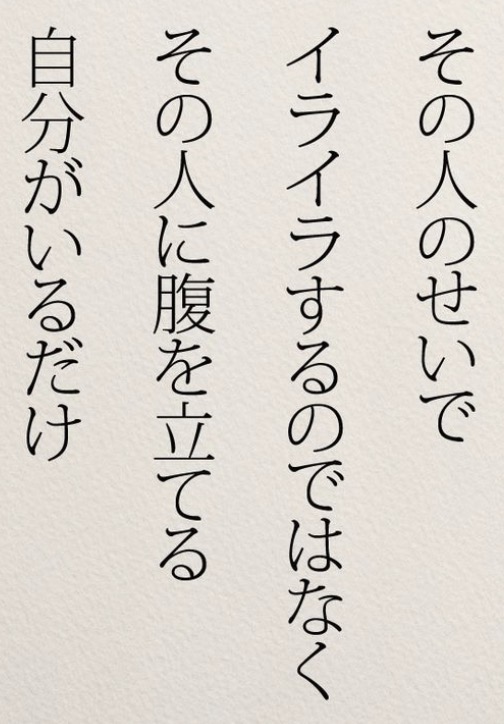 その人のせいで
イライラするのではなく
その人に腹を立てる
自分がいるだけ